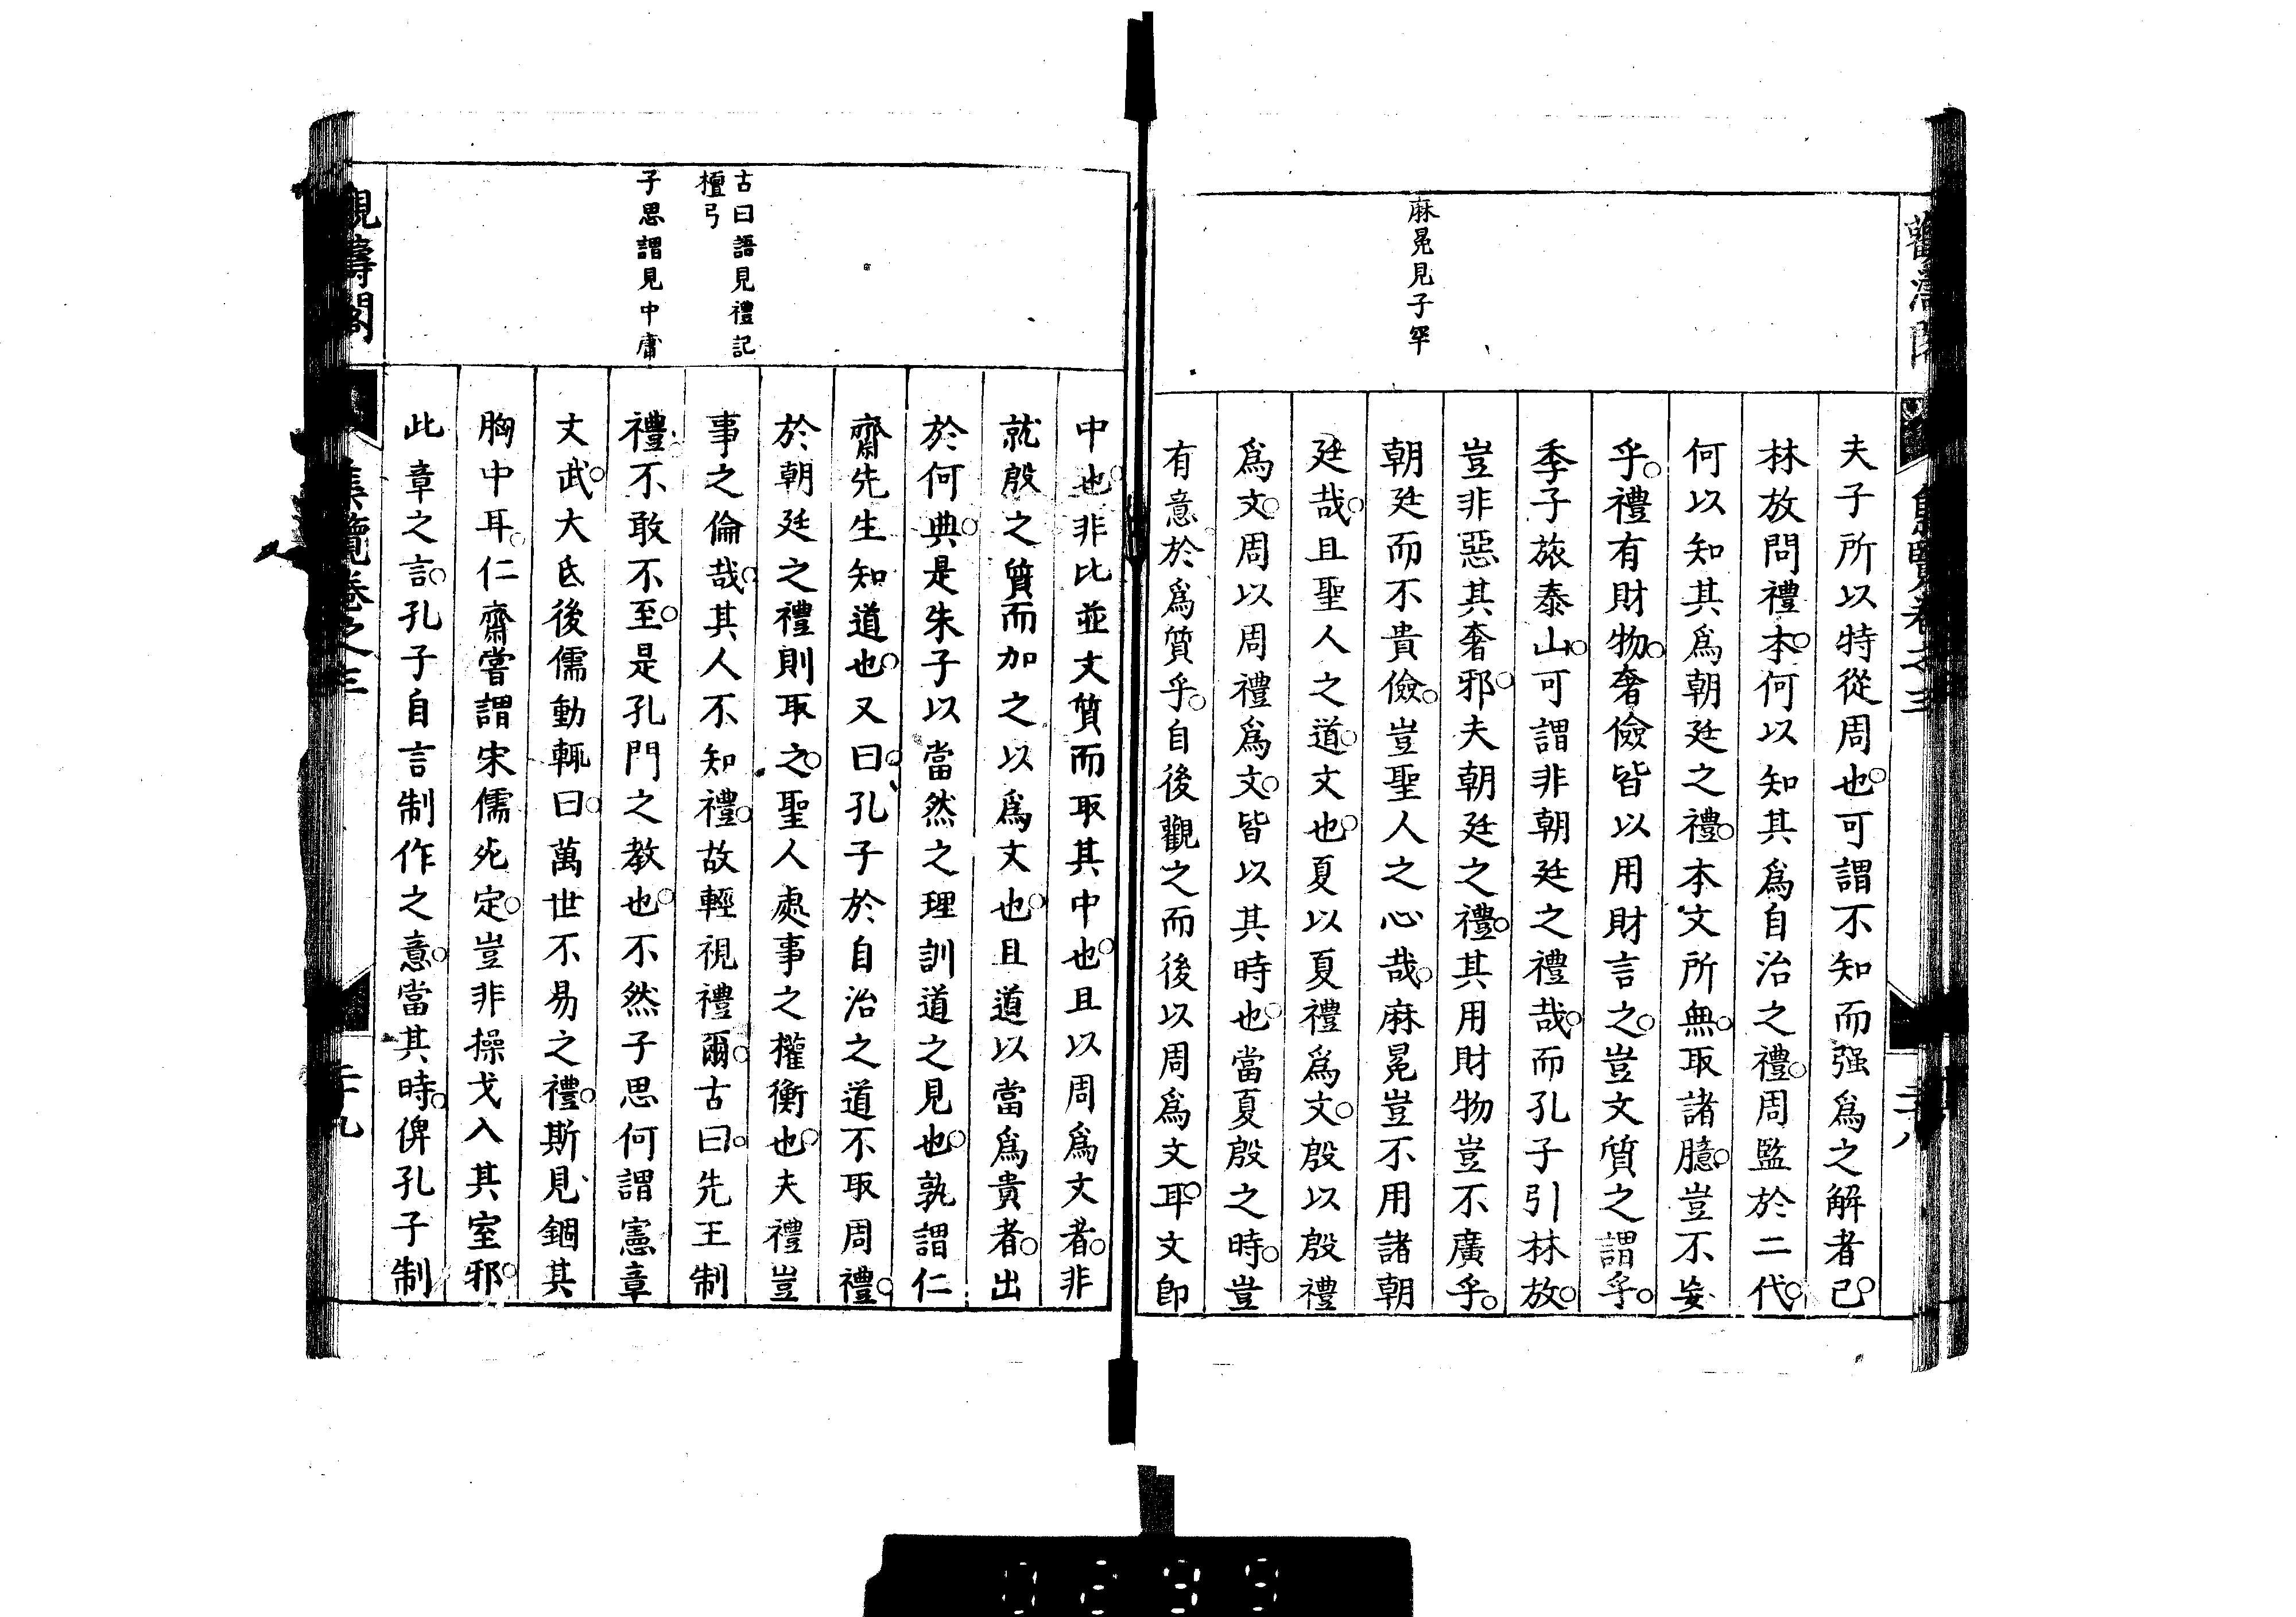 麻冕見子罕
夫子所以特從周也。可謂不知而强爲之解者已。
林放問禮本。何以知其爲自治之禮。周監於二代。
何以知其爲朝廷之禮。本文所無。取諸臆。豈不妄
乎。禮有財物。奢儉皆以用財言之。豈文質之謂乎。
季子旅泰山。可謂非朝廷之禮哉。而孔子引林放。
豈非惡其奢邪。夫朝廷之禮。其用財物豈不廣乎。
朝廷而不貴儉。豈聖人之心哉。麻冕豈不用諸朝
廷哉。且聖人之道。文也。夏以夏禮爲文。殷以殷禮
爲文。周以周禮爲文。皆以其時也。當夏殷之時。豈
有意於爲質乎。自後觀之而後以周爲文耳。文即
古曰語見禮記
檀弓
子思謂見中庸
中也。非比並文質而取其中也。且以周爲文者。非
就殷之質而加之以爲文也。且道以當爲貴者。出
於何典。是朱子以當然之理訓道之見也。孰謂仁
齋先生知道也。又曰。孔子於自治之道不取周禮。
於朝廷之禮則取之。聖人處事之權衡也。夫禮豈
事之倫哉。其人不知禮。故輕視禮爾。古曰。先王制
禮。不敢不至。是孔門之教也。不然子思何謂憲章
文武。大氐後儒動輒曰。萬世不易之禮。斯見錮其
胸中耳。仁齋嘗謂宋儒死定。豈非操戈入其室邪。
此章之言。孔子自言制作之意。當其時。俾孔子制
觀濤閣
集覽卷之三
二十九
二十八